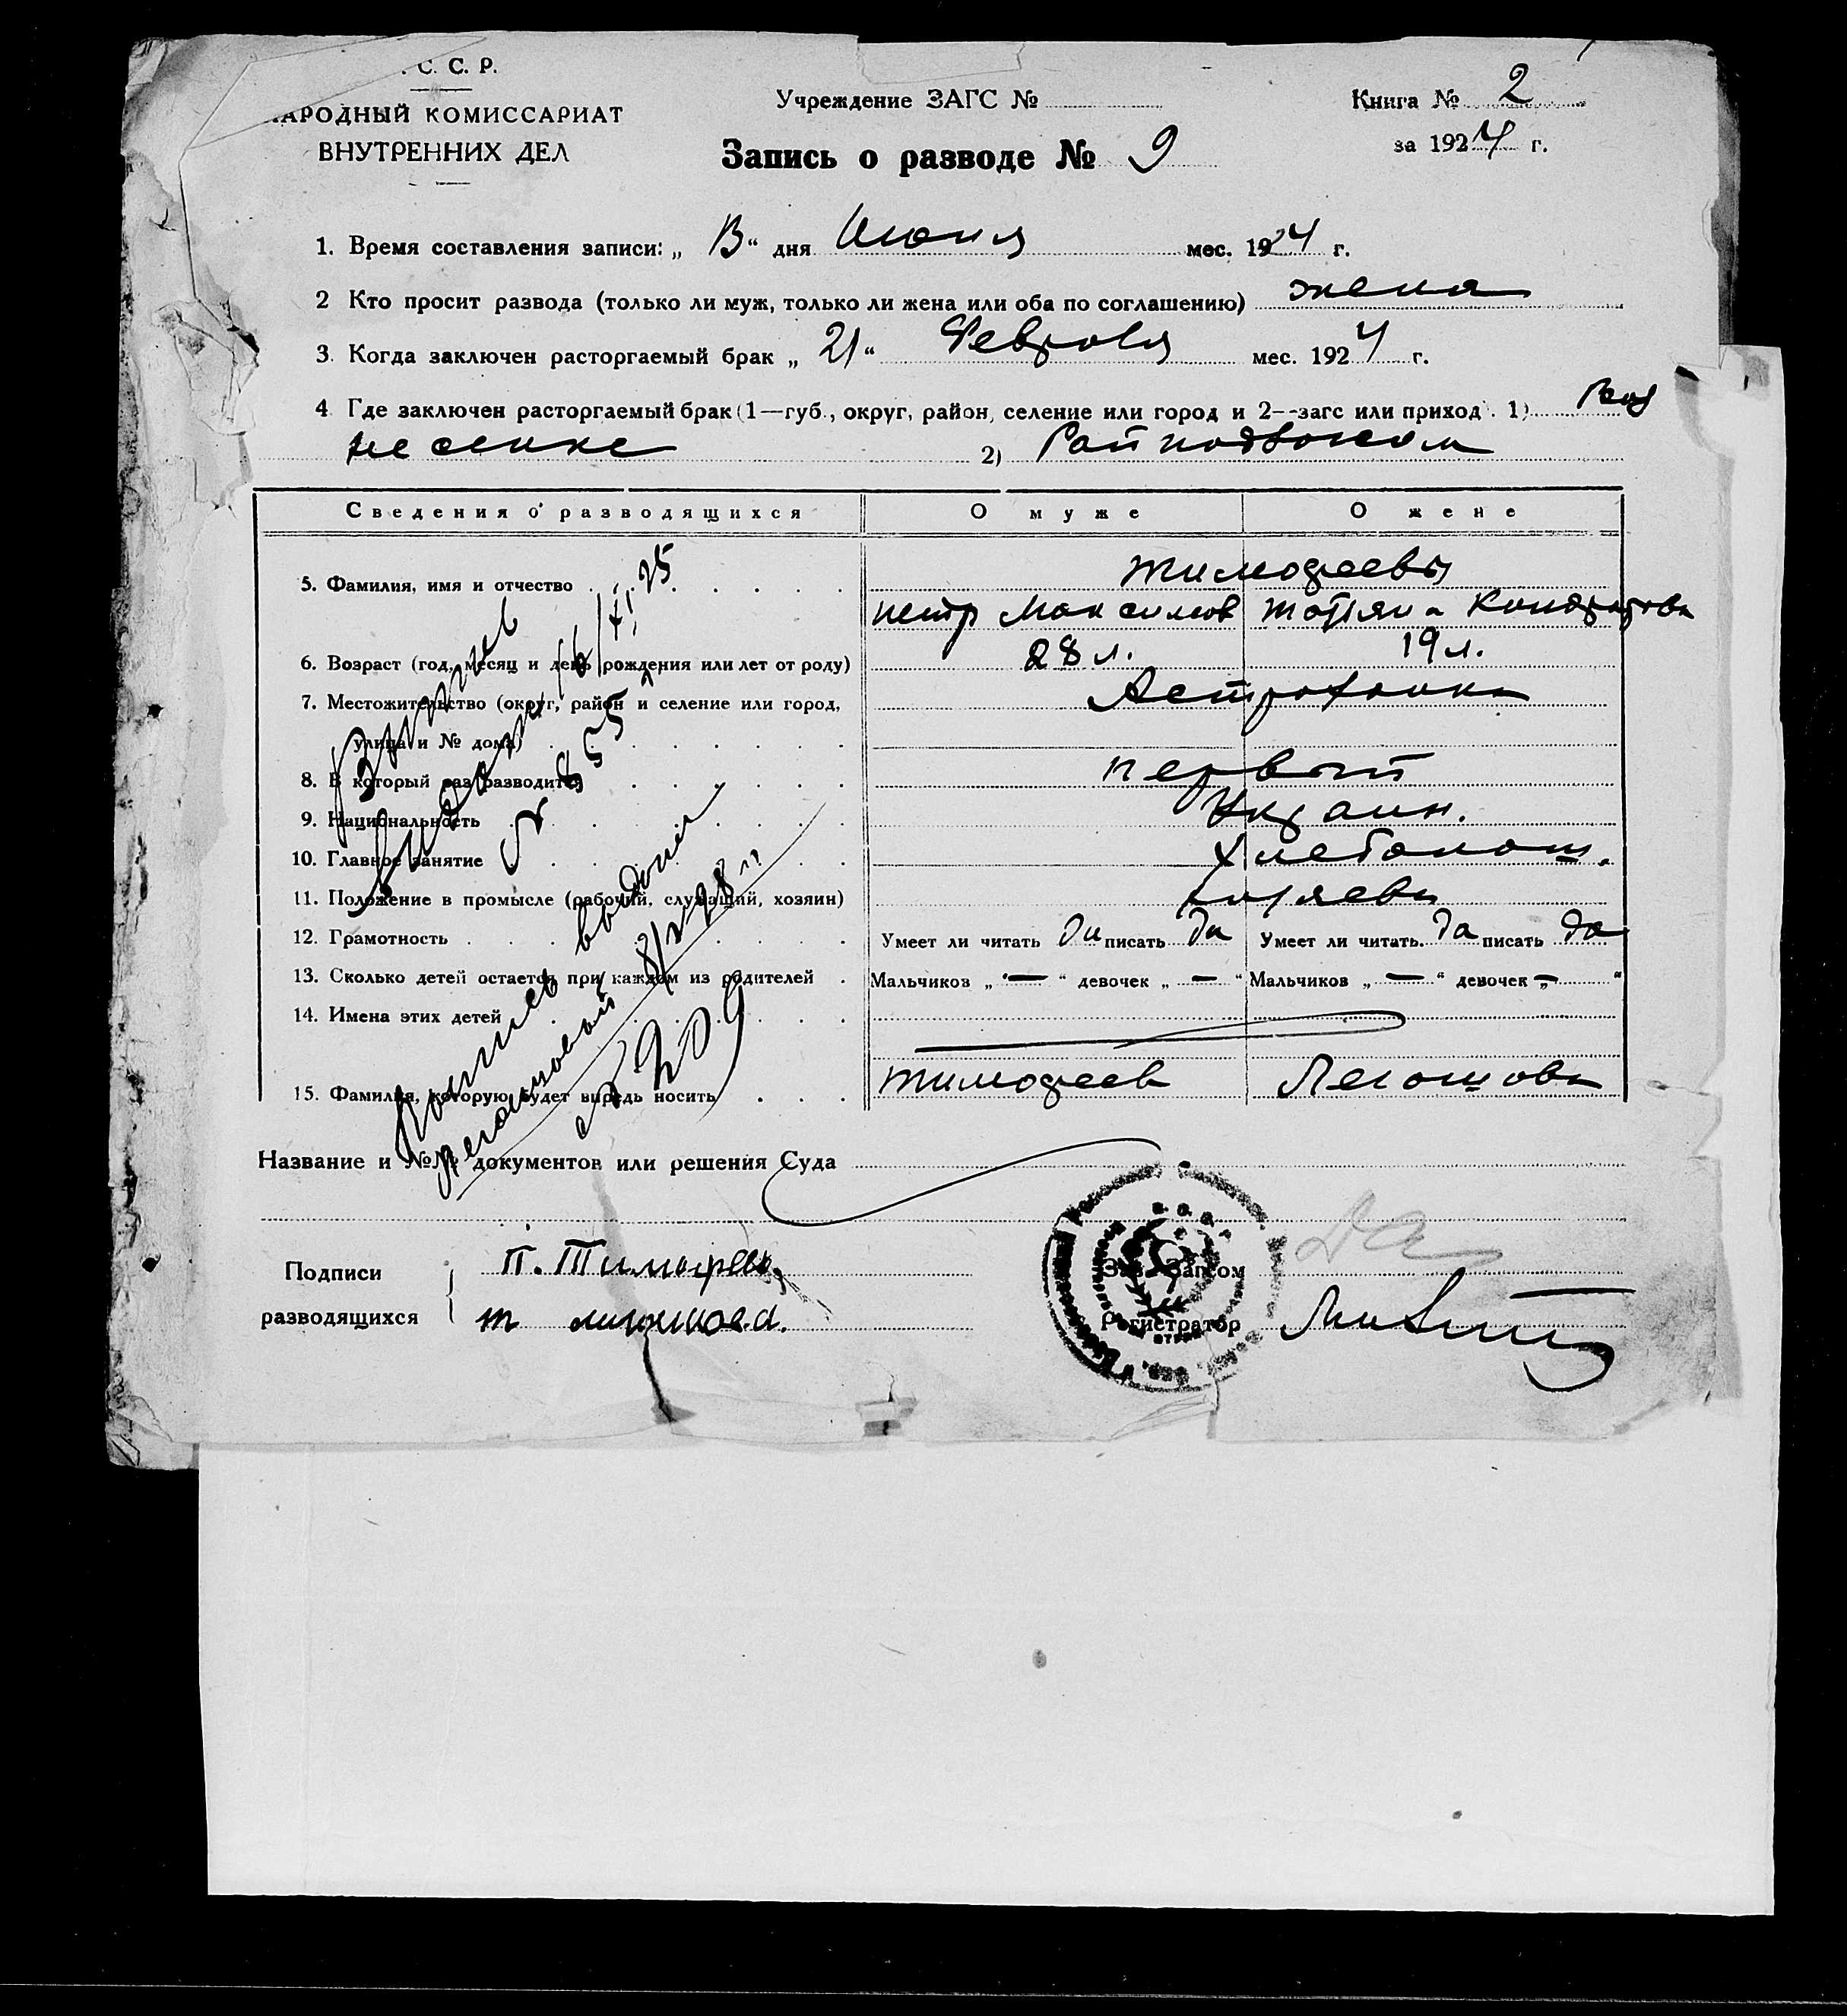 . С. С. Р.
НАРОДНЫЙ КОМИССАРИАТ
ВНУТРЕННИХ ДЕЛ
Учреждение ЗАГС №
Книга № 2
за 1924 г.
Запись о разводе № 9
1. Время составления записи: „ 13 “ дня Июня мес. 1924 г.
2 Кто просит развода (только ли муж, только ли жена или оба по соглашению) жена
3. Когда заключен расторгаемый брак „ 21 “ Февраля мес. 1924 г.
4 Где заключен расторгаемый брак (1—губ., округ, район, селение или город и 2--загс или приход). 1)
2)
Сведения о разводящихся О муже О жене
5. Фамилия, имя и отчество Тимофеевы
Петр Максимов Татьяна Кондратова
6. Возраст (год, месяц и день рождения или лет от роду) 28 л. 19 л.
7. Местожительство (округ, район и селение или город, Астраханка
улица и № дома)
8. В который раз разводится первый
9. Национальность Украин.
10. Главное занятие Хлебопаш.
11. Положение в промысле (рабочий, служащий, хозяин) хозяева
12. Грамотность Умеет ли читать да писать да Умеет ли читать. да писать да
13. Сколько детей остается при каждом из родителей Мальчиков „ — “ девочек „ — “ Мальчиков „ — “ девочек „ — “
14. Имена этих детей
15. Фамилия, которую будет впредь носить Тимофеев Легошова
16/XI 25
№ 855
Название и №№ документов или решения Суда
Подписи
разводящихся
П. Тимофеев
Зав. Загсом
Регистратор